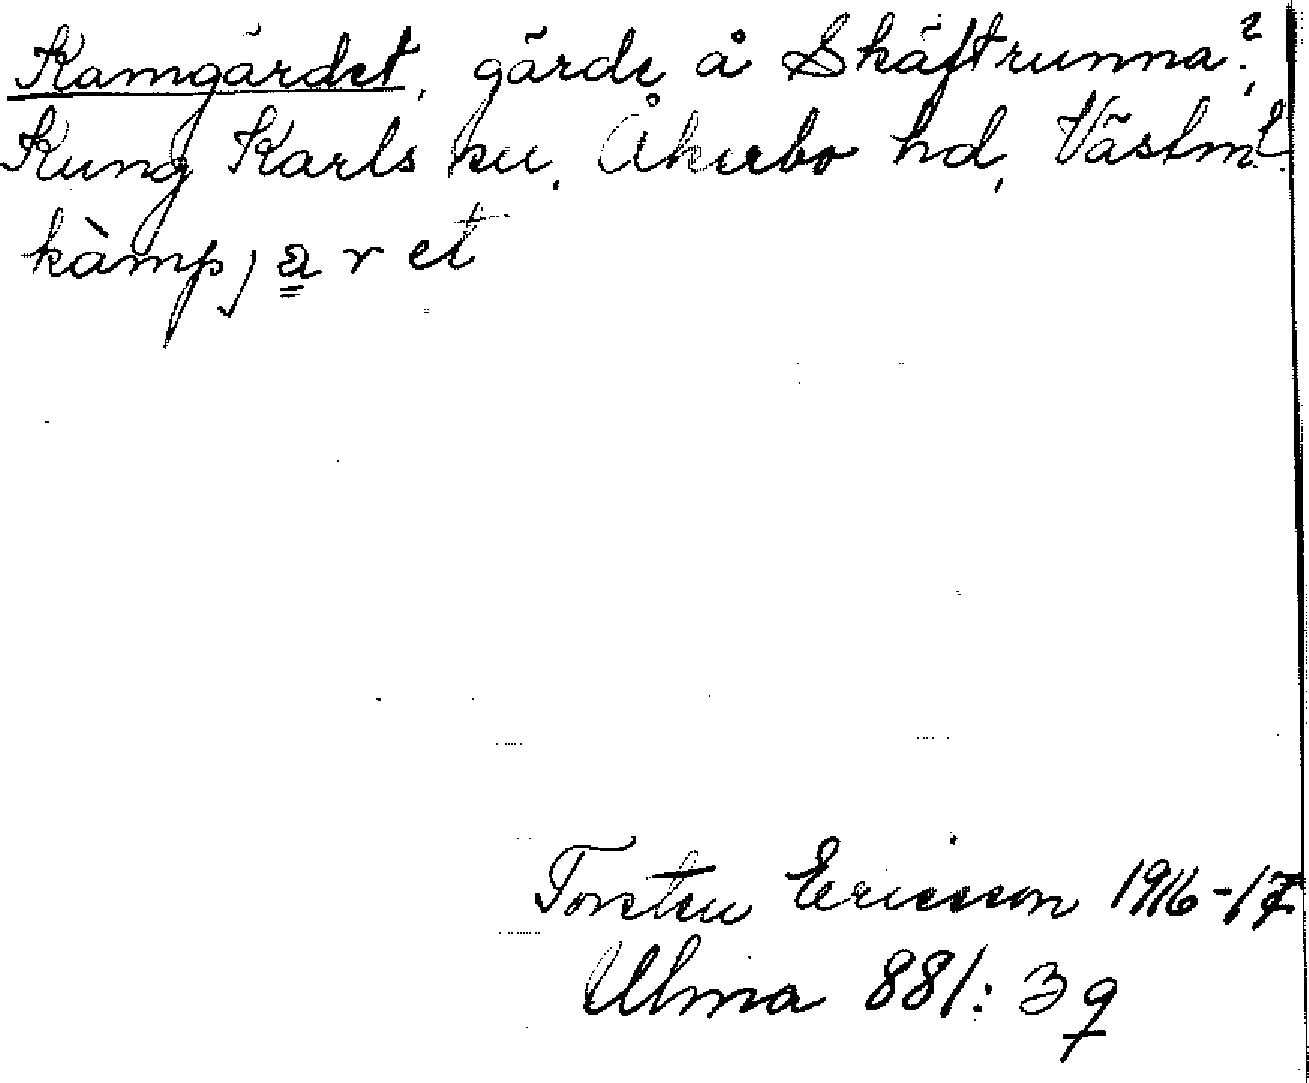 Kamgärdet, gärde å Skäftrunna?,
Kung Karls sn, Åkerbo hd, Västml.
kàmpjaret
Torsten Ericsson 1916-17
Ulma 881: 3 q